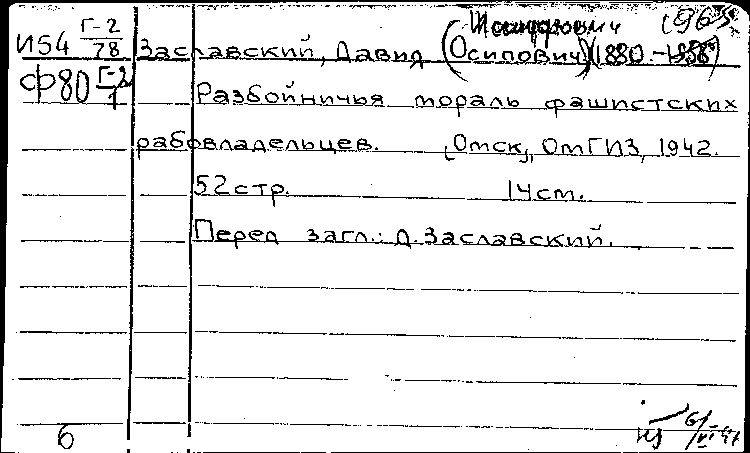 1965
И54 Г-2/78 Заславский, Давид (Осипович) (1880.-
Ф80 Г-2/1 Разбойничья мораль фашистских
рабовладельцев. [Омск], ОмГИЗ, 1942.
52 стр. 14 см.
Перед загл.: Д. Заславский.
6